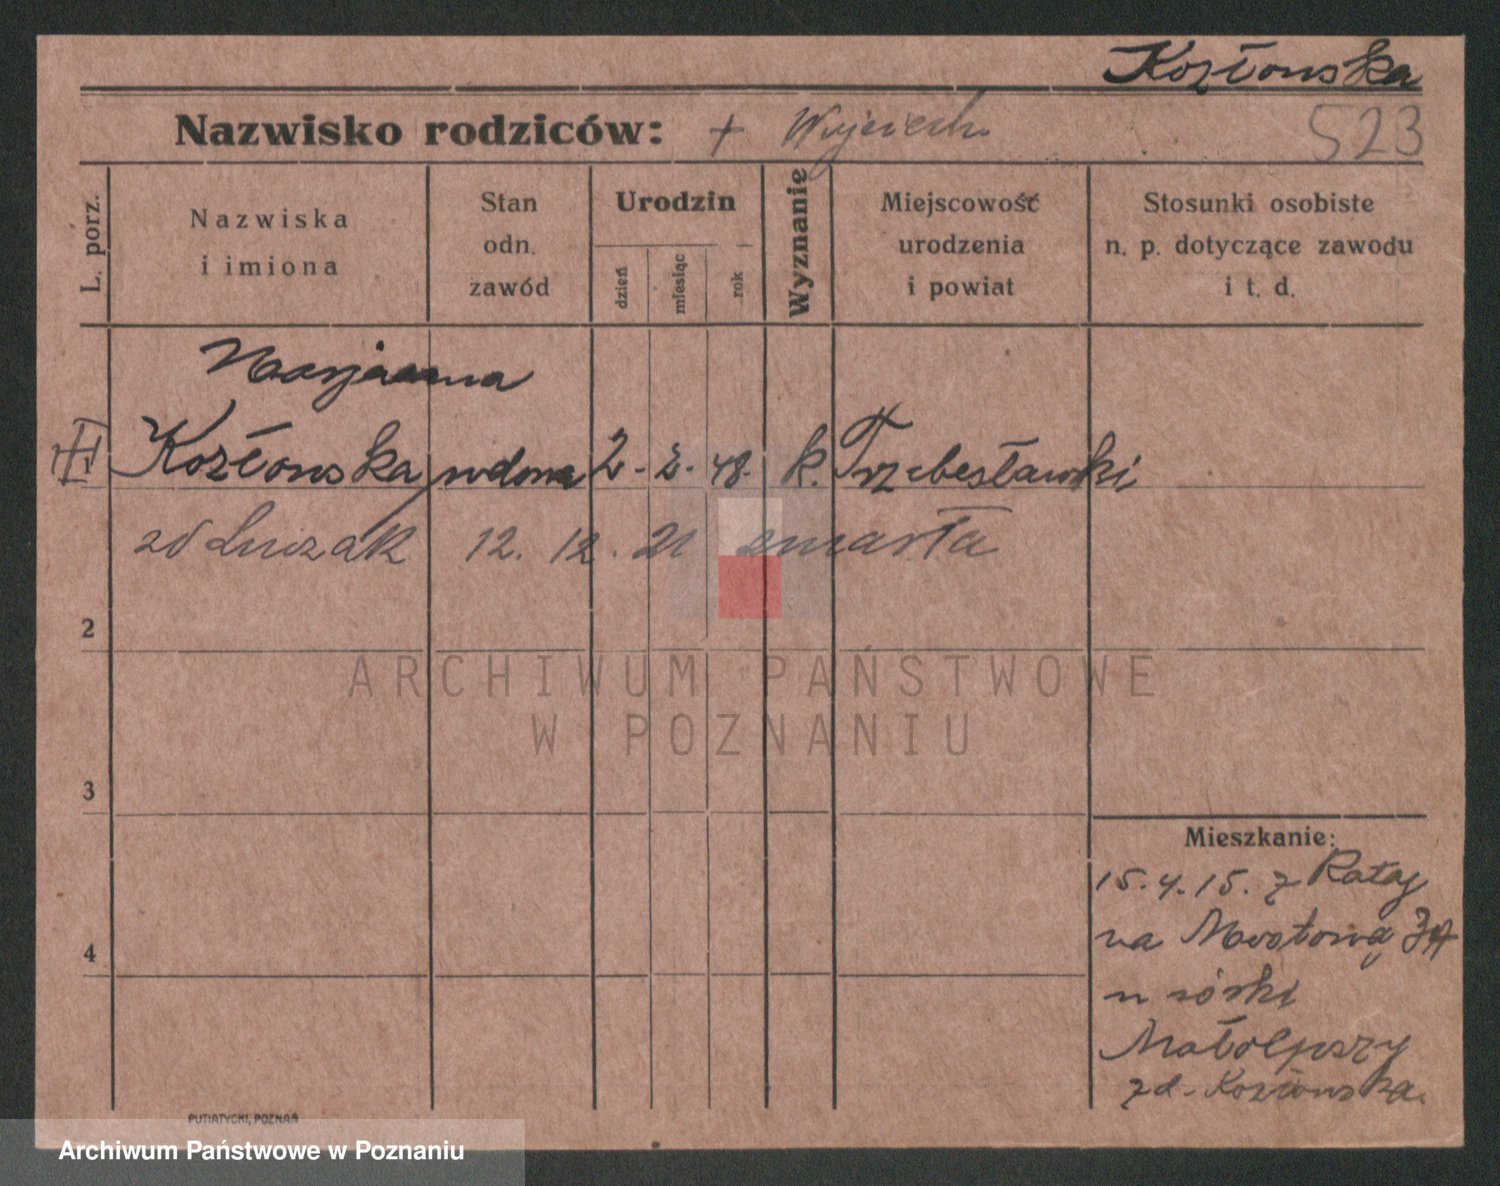 Kozłowska
Nazwisko rodziców: + Wojciech
523
L. porz.
Nazwiska
i imiona
Stan
odn.
zawód
Urodzin
dzień
miesiąc
rok
Wyznanie
Miejscowość
urodzenia
i powiat
Stosunki osobiste
n. p. dotyczące zawodu
i t. d.
Marjanna
1 Kozłowska wdowa 2. 2. 48. k. Trzebesławki
zd Łuczak 12. 12. 21 zmarła
2
3
4
Mieszkanie:
15.4.15. z Rataj
na
u córki
Małolepszy
zd. Kozłowska.
PUTIATYCKI, POZNAŃ
ARCHIWUM PAŃSTWOWE
W POZNANIU
Archiwum Państwowe w Poznaniu